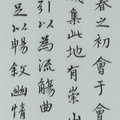 春之初會于會
咸集此地有崇山
引以為流觴曲
足以暢敘幽情